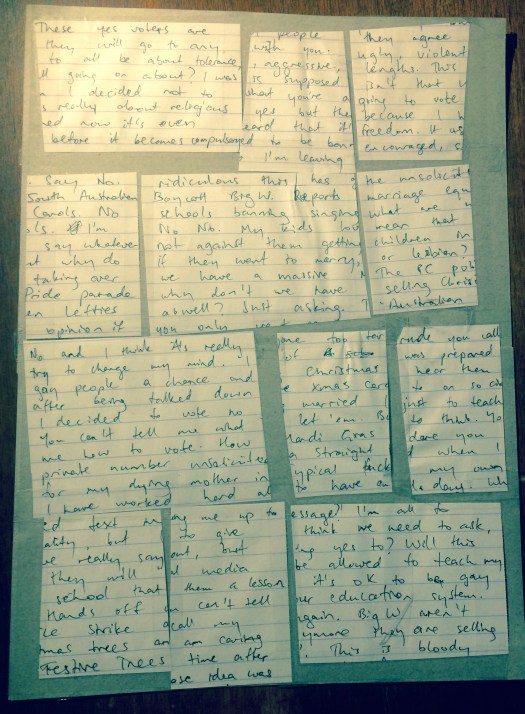 These yes voters are
they will go to any
to all be about tolerance,
ll going on about? I was
I decided not to
s really about religious
ed now it's even
before it becomes compulsory
people
with you.
, aggressive,
is supposed
what you're a
yes but the
eard that it'
to be ban
I'm leaving
they agree
ugly, violent
lengths. This
isn't that w
going to vote
because I h
freedom. It w
encouraged, s
. Say No.
South Australian
Carols. No
ols. If I'm
say whatever
nt why do
taking over
Pride parade
en Lefties
opinion if
ridiculous this has g
Boycott Big W. Reports
schools banning singing
No No. My kids lov
not against them getting
if they want to marry,
we have a massive M
why don't we have
aswell? Just asking. T
you only
the unsolicit
marriage equ
What are w
mean that
children in
or lesbian?
The PC pol
selling Chris
- Australian
No and I think it's really
try to change my mind. I
gay people a chance and
after being talked down
I decided to vote no
You can't tell me what
me how to vote. How
private number unsolicited
for my dying mother in
I have worked hard all
one too far
of
Christmas
e xmas car
s married
let 'em. Bu
Mardi Gras
a straight
ypical fuck
to have an
rude you call
was prepared
hear them
to an so ca
just to teach
to think. Yo
dare you
d when I
my own
le day. Wh
ed text m
ality, but
ve really say
they will
school that
Hands off
le strike
mas trees an
Festive Trees
ng me up to
to give
out, but
l media
them a lesson
can't tell
call my
am caring
time after
ose idea was
essage! I'm all for
think we need to ask,
ng yes to? Will this
be allowed to teach my
it's OK to be gay
our education system.
again. Big W aren't
ymore they are selling
. This is bloody